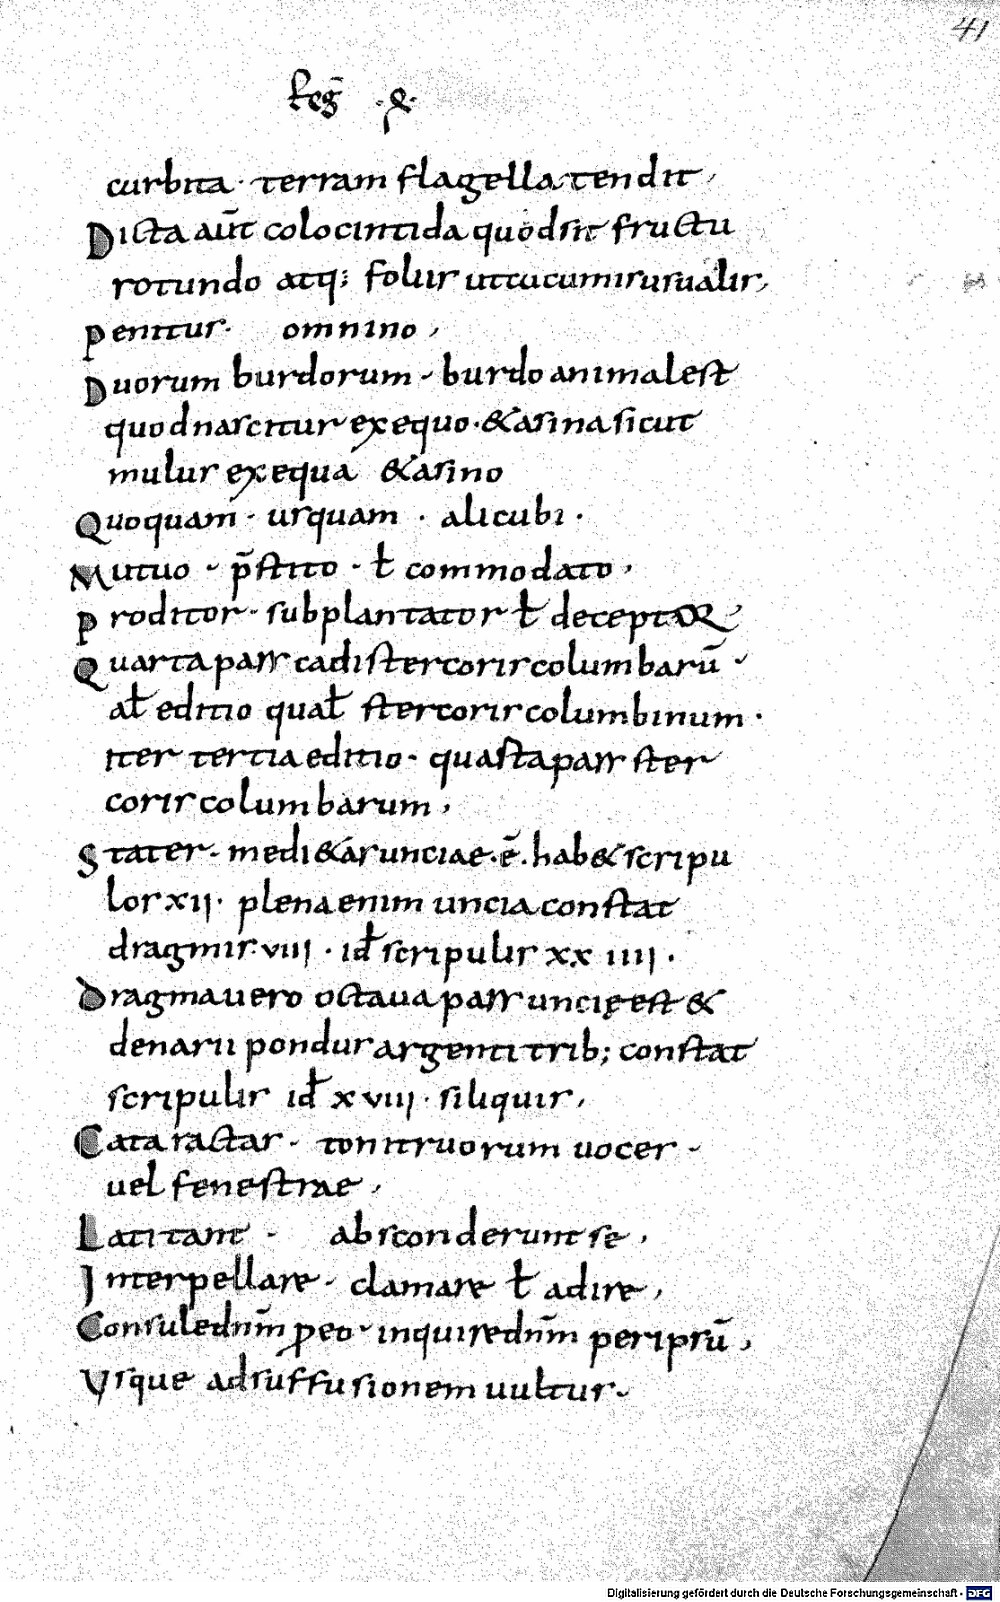 41
Reg̅ · & ·
curbita · terram flagella tendit,
Dicta aut̅ colocintida quod sit fructu
rotundo atq; foliis ut cucumis usualis,
Penitus · omnino,
Duorum burdorum · burdo animal est
quod nascitur ex equo · & asina sicut
mulus ex equa & asino
Quoquam · usquam · alicubi ·
Mutuo · p̅stito · ł commodato,
Proditor · subplantator ł deceptoR,
Quarta pars cadi stercoris columbaru̅ ·
ał editio quał stercoris columbinum ·
iter tertia editio · quasta pars ster
coris columbarum,
Stater · medi&as unciae · e̅ · hab& scripu
los xii · plena enim uncia constat
dragmis · viii · id̵ scripulis xx iiii ·
Dragma uero octaua pars uncię est &
denarii pondus argenti trib; constat
scripulis id̵ x viii · siliquis,
Cataractas · tonitruorum uoces ·
uel fenestrae,
Latitant · absconderunt se,
Interpellare · clamare ł adire,
Consuled̅n̅m ꝓ eo · inquired̅n̅m per ipsu̅,
Vsque ad suffusionem uultus ·
Digitalisierung gefördert durch die Deutsche Forschungsgemeinschaft - DFG